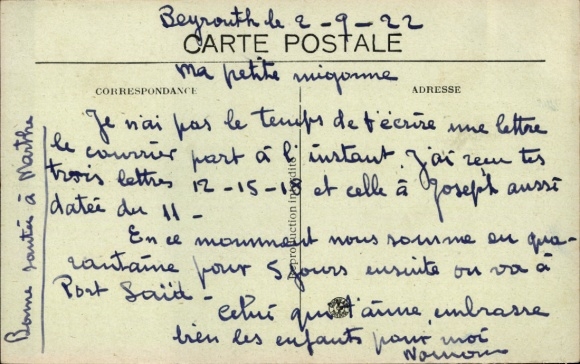 Beyrouth le 2-9-22
CARTE POSTALE
Ma petite mignonne
CORRESPONDANCE
ADRESSE
Je n'ai pas le temps de t'écrire une lettre
le courrier part à l'instant. J'ai reçu tes
trois lettres 12-15-18 et celle à Joseph aussi
datée du 11-
En ce momment nous somme en qua-
rantaine pour 5 jours ensuite on va à
Port Saïd-
Celui qui t'aime, embrasse
bien les enfants pour moi
Bonne santée à Marthe
Reproduction interdite